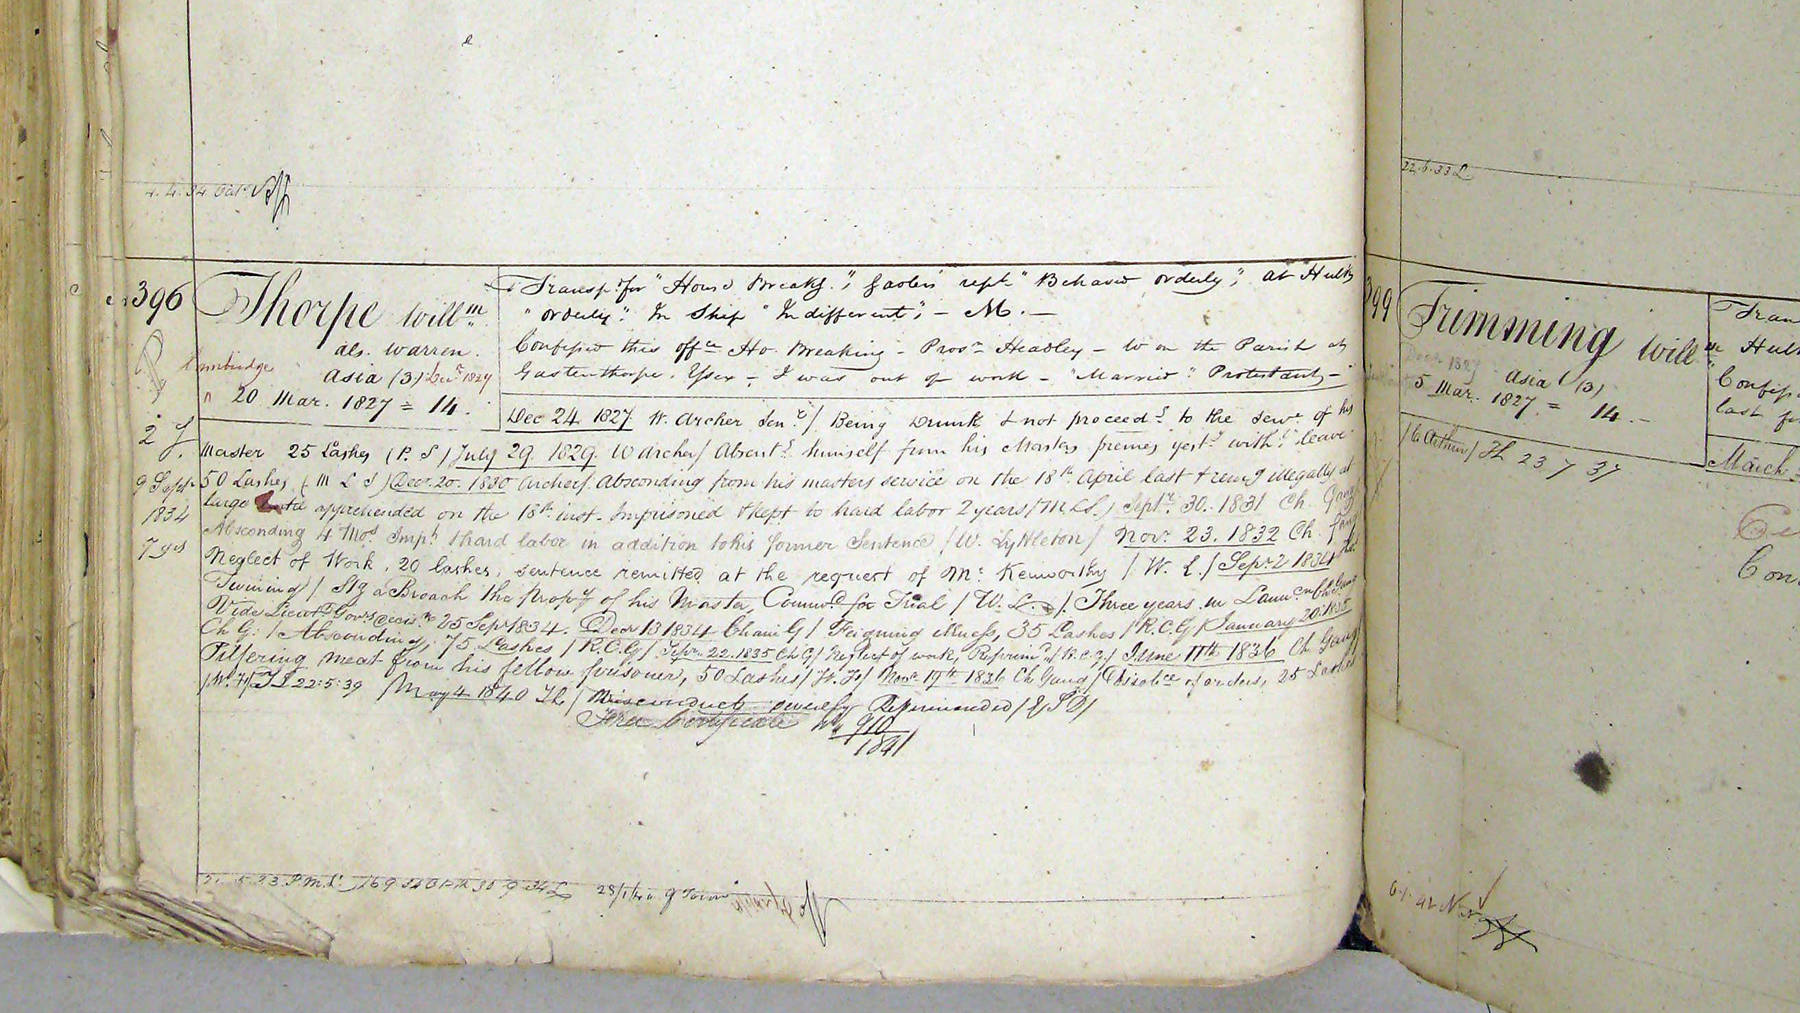 396
Thorpe Will.m
als. Warren.
Asia (3) Decr 1827
20 Mar. 1827 = 14.
Transp.d for "House Breakg."; Gaolers rept "Behaved orderly"; at Hulk
"orderly": In Ship "Indifferent"; — M. —
Confessed this offce Ho. Breaking — Prosr Headley — W on the Parish at
Gastenthorpe. Essex —, I was out of work — "Married": Protestant —
Dec 24. 1827 W. Archer Senr / Being Drunk & not proceedg to the serve of his
Master 25 Lashes (P. S) July 29. 1829. W Archer / Absentg himself from his Masters premes yesty witht leave
50 Lashes (M L S) Decr 20. 1830 Archer / Absconding from his masters service on the 18th April last & remg illegally at
large until apprehended on the 18th inst. Imprisoned & kept to hard labor 2 years / M.L.S. / Septr 30. 1831 Ch. Gang /
Absconding 4 Mos Impt & hard labor in addition to his former Sentence / W. Lyttleton / Novr 23. 1832 Ch. Gang
Neglect of Work. 20 lashes, sentence remitted at the request of Mr Kenworthy / W. L. / Sepr 2 1834
Twining / Stg a Broach the propy of his Master, Commd for Trial / W. L. / Three years in Ch. Gang
Vide Lieut Govrs decisn 25 Sepr 1834. Decr 13 1834 Chain G / Feigning illness, 35 Lashes / R.C.G / January 20: 1835
Ch G: / Absconding, 75 Lashes / R.C.G / Sepr 22. 1835 Ch G / Neglect of work, Reprimd / R.C.G / June 11th 1836 Ch Gang /
Pilfering meat from his fellow prisoner, 50 Lashes / Novr 19th 1836 Ch Gang / Disobce of orders, 25 Lashes
22:5:39 May 4 1840 / Misconduct severely Reprimanded /
Free Certificate No 910
1841
2 J.
9 Septr
1834
7 yrs
399
Trimming Will.m
Asia (3)
5 Mar. 1827 = 14. —
Tran
Hulk
Confess
last f
March
23 / 7 37
22.6.33 L
Con